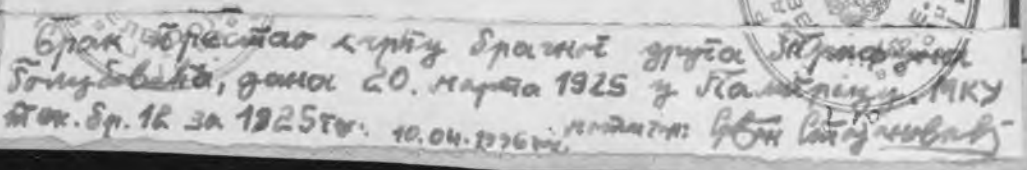 Брак престао смрћу брачног друга Трифуна
Голубовића, дана 20. марта 1925 у МКУ
тек. бр. 12 за 1925 год. 10.04.1996 год. матичар: